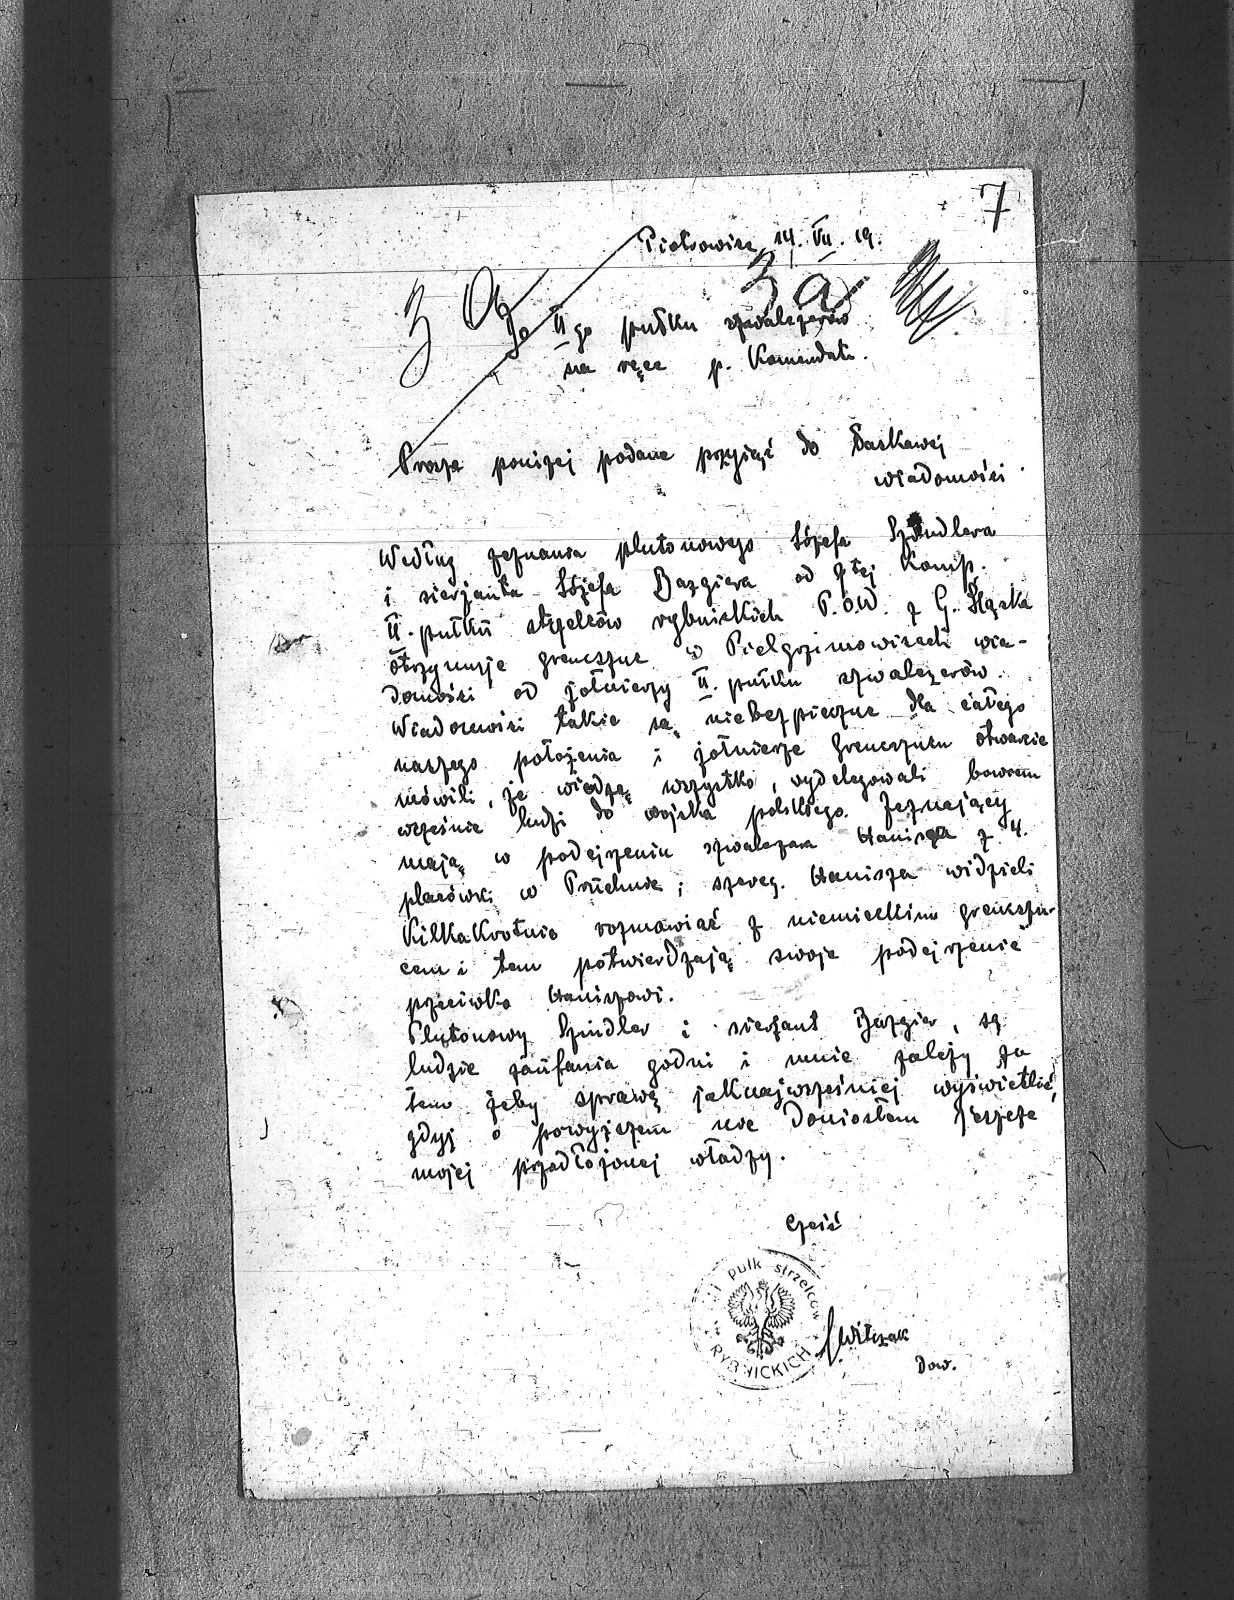 7
Piotrowice, 14. VII. 19.
3 a
3 a
Do II go pułku szwależerów
na ręce p. Komendata.
Proszę poniżej podane przyjąć do łaskawej
wiadomości.
Według zeznania plutonowego Józefa Szindlera
i sierżanta Józefa Bazgiera od 7 tej Komp.
II. pułku strzelców rybnickich P.O.W. z G. Śląska
otrzymuje grencszuc w Pielgrzimowicach wia-
domości od żołnierzy II. pułku szwależerów.
Wiadomości takie są niebezpieczne dla całego
naszego położenia i żołnierze Grencszucu otwarcie
mówili, że wiedzą wszystko, wydelegowali bowiem
wcześnie ludzi do wojska polskiego. Zeznający
mają w podejrzeniu szwależera Hanisza z 4.
placówki w Pruchnie; szereg. Hanisza widzieli
Kilkakrotnie rozmawiać z niemieckim grencszu-
cem i tem potwierdzają swoje podejrzenie
przeciwko Haniszowi.
Plutonowy Szindler i sierżant Bazgier, są
ludzie zaufania godni i mnie zależy za
tem żeby sprawę jaknajwcześniej wyświetlić,
gdyż o powyższem nie doniosłem jeszcze
mojej przedłożonej władzy.
Cześć
pułk strzelców
RYBNICKICH
Witczak
Dow.